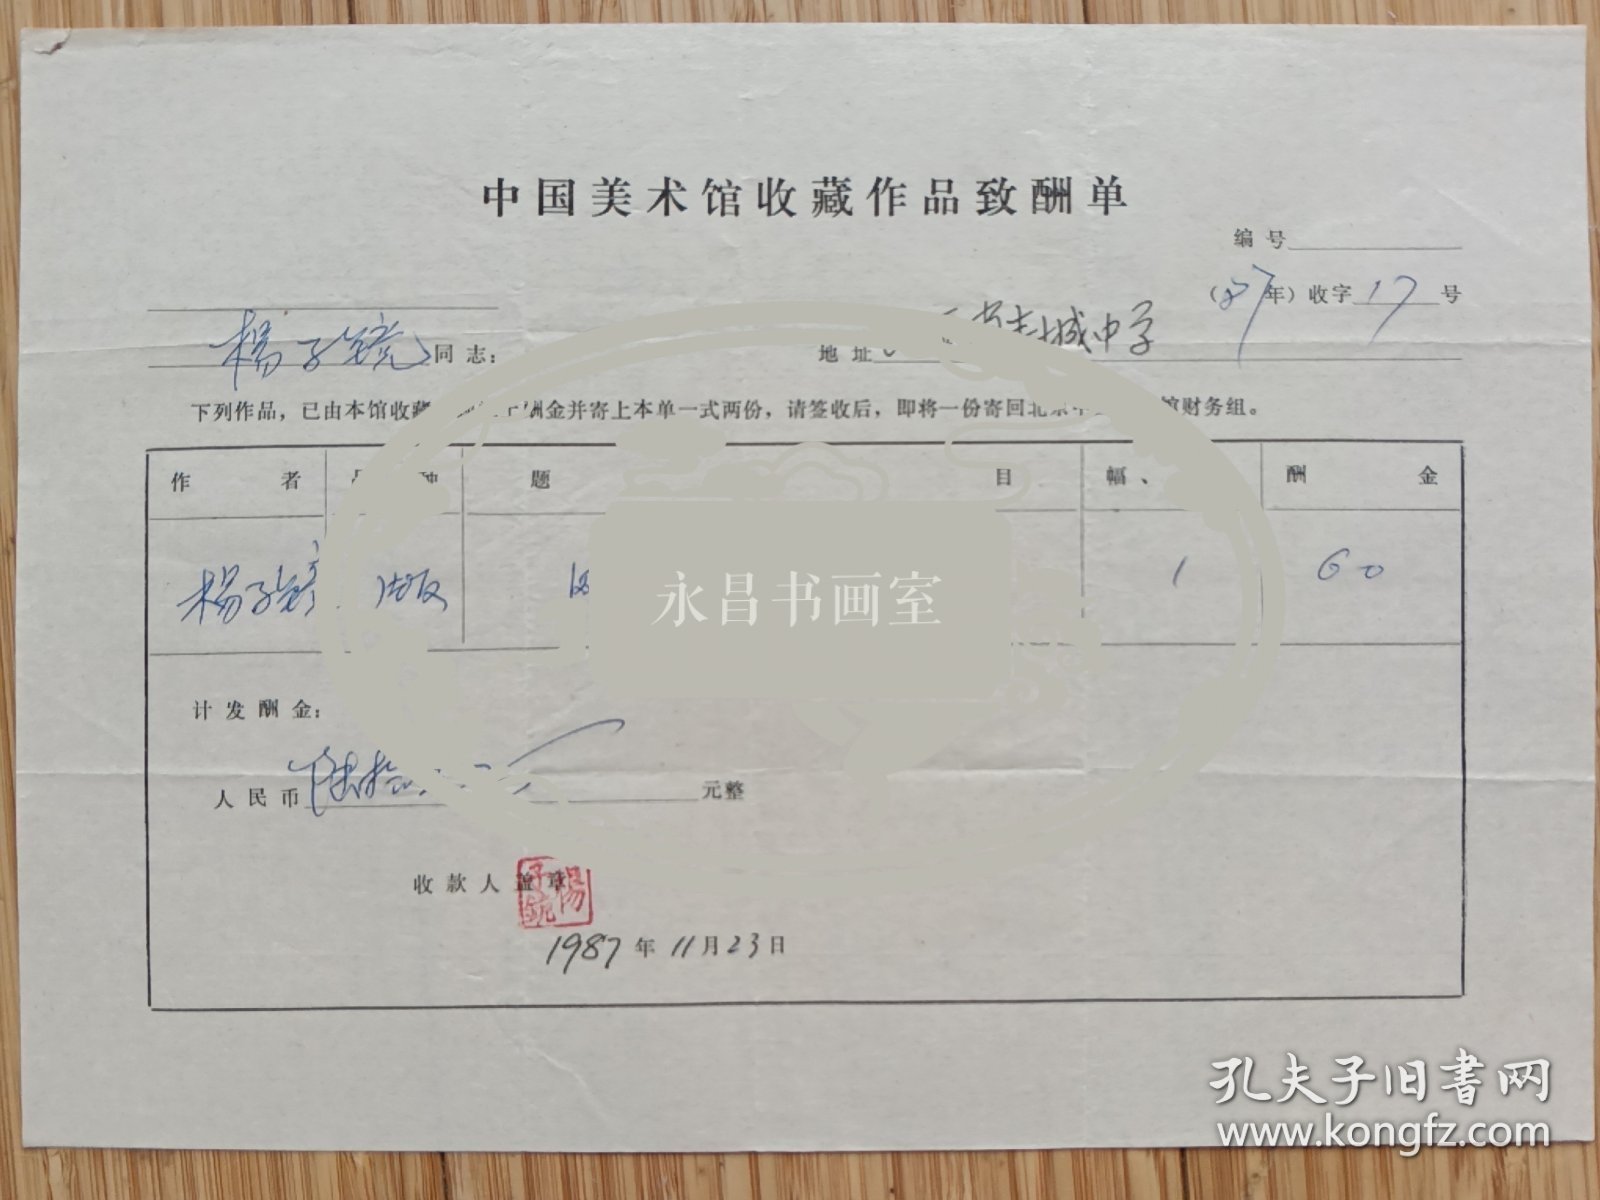 中国美术馆收藏作品致酬单
编号
(87年)收字17号
楊子鋭同志: 地址 城中学
下列作品，已由本馆收藏 酬金并寄上本单一式两份，请签收后，即将一份寄回北京 馆财务组。
作者 题目 幅、 酬金
楊子 1 60
永昌书画室
计发酬金:
人民币陆拾 元整
收款人盖章
1987年11月23日
孔夫子旧书网
www.kongfz.com